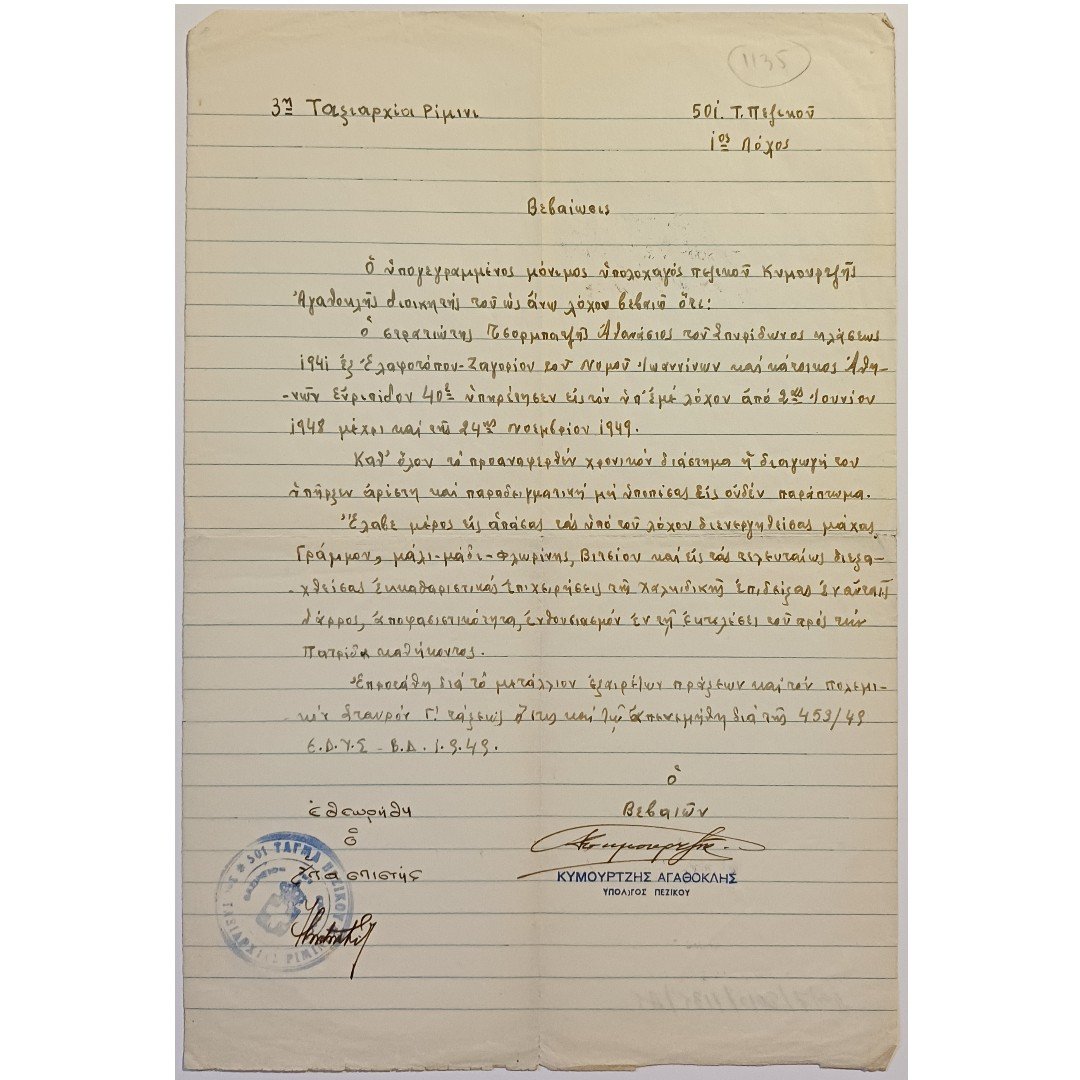 1135
3η Ταξιαρχία Ρίμινι
501. Τ. Πεζικοῦ
1ος Λόχος
Βεβαίωσις
Ὁ ὑπογεγραμμένος μόνιμος ὑπολοχαγός πεζικοῦ Κυμουρτζῆς
Ἀγαθοκλῆς διοικητής τοῦ ὡς ἄνω λόχου βεβαιῶ ὅτι:
Ὁ στρατιώτης Τσορμπατζῆς Ἀθανάσιος τοῦ Σπυρίδωνος κλάσεως
1941 ἐξ Ἐλαφοτόπου-Ζαγορίου τοῦ Νομοῦ Ἰωαννίνων καί κάτοικος Ἀθη-
-νῶν Εὐριπίδου 40ε ὑπηρέτησεν εἰς τόν ὑπ' ἐμέ λόχον ἀπό 2ας Ἰουνίου
1948 μέχρι καί τῆς 24ης Νοεμβρίου 1949.
Καθ' ὅλον τό προαναφερθέν χρονικόν διάστημα ἡ διαγωγή του
ὑπῆρξεν ἀρίστη καί παραδειγματική μή ὑποπέσας εἰς οὐδέν παράπτωμα.
Ἔλαβε μέρος εἰς ἁπάσας τάς ὑπό τοῦ λόχου διενεργηθείσας μάχας,
Γράμμου, μάλι-μάδι-Φλωρίνης, Βιτσίου καί εἰς τάς τελευταίως διεξα-
χθείσας ἐκκαθαριστικάς ἐπιχειρήσεις τῆς Χαλκιδικῆς ἐπιδείξας ἐν αὐταῖς
θάρρος, ἀποφασιστικότητα, ἐνθουσιασμόν ἐν τῇ ἐκτελέσει τοῦ πρός τήν
Πατρίδα καθήκοντος.
Ἐπροτάθη διά τό μετάλλιον ἐξαιρέτων πράξεων καί τόν πολεμι-
κόν Σταυρόν Γ' τάξεως καί ἀπενεμήθη διά τῆς 453/49
Ε.Δ.Υ.Σ - Β.Δ. 1.9.49.
ὁ
ἐθεωρήθη
Βεβαιῶν
ὁ
Ὑπασπιστής
ΚΥΜΟΥΡΤΖΗΣ ΑΓΑΘΟΚΛΗΣ
ΥΠΟΛ/ΓΟΣ ΠΕΖΙΚΟΥ
501 ΤΑΓΜΑ ΠΕΖΙΚΟΥ
ΤΑΞΙΑΡΧΙΑΣ ΡΙΜΙΝΙ